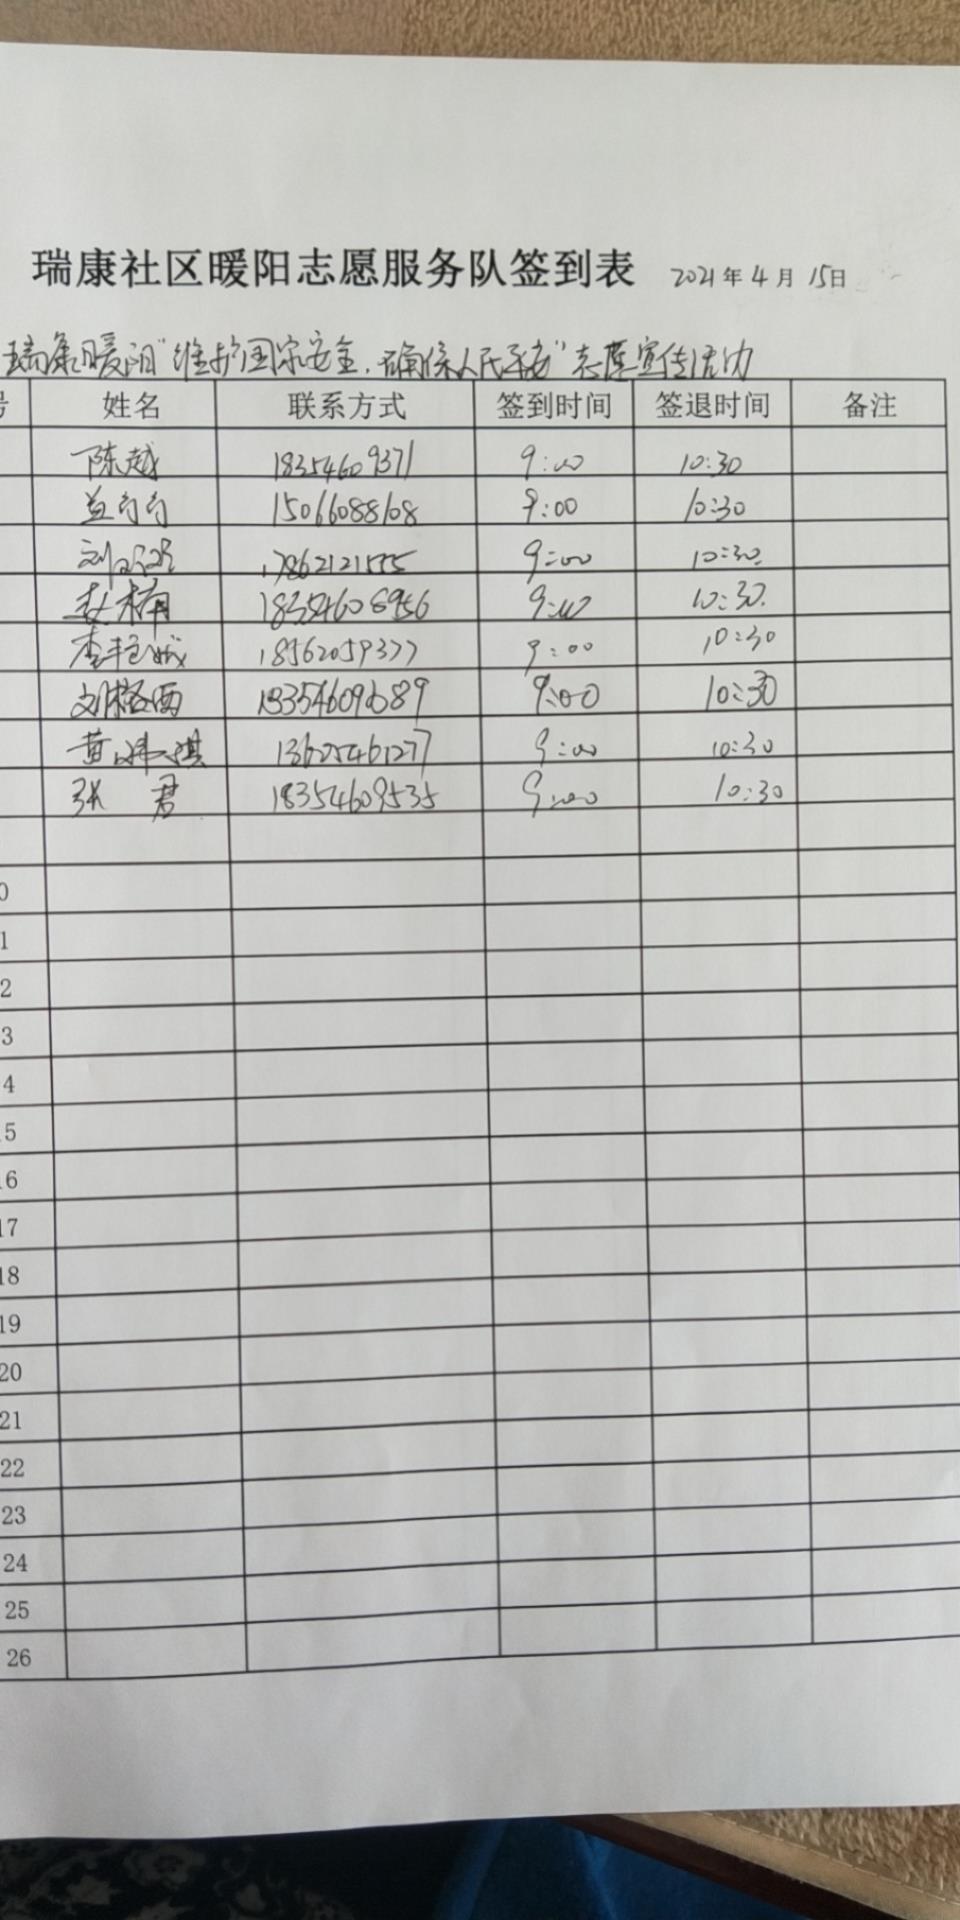 瑞康社区暖阳志愿服务队签到表 2021年4月15日
瑞康暖阳"维护国家安全,确保人民平安"志愿宣传活动
号 姓名 联系方式 签到时间 签退时间 备注
陈越 18354609371 9:00 10:30
15066088108 9:00 10:30
刘 17862121555 9:00 10:30
赵楠 18354608956 9:00 10:30
李艳娥 18562059377 9:00 10:30
刘格西 9:00 10:30
黄 琪 13625461277 9:00 10:30
张君 18354609535 9:00 10:30
0
1
2
3
4
15
16
17
18
19
20
21
22
23
24
25
26